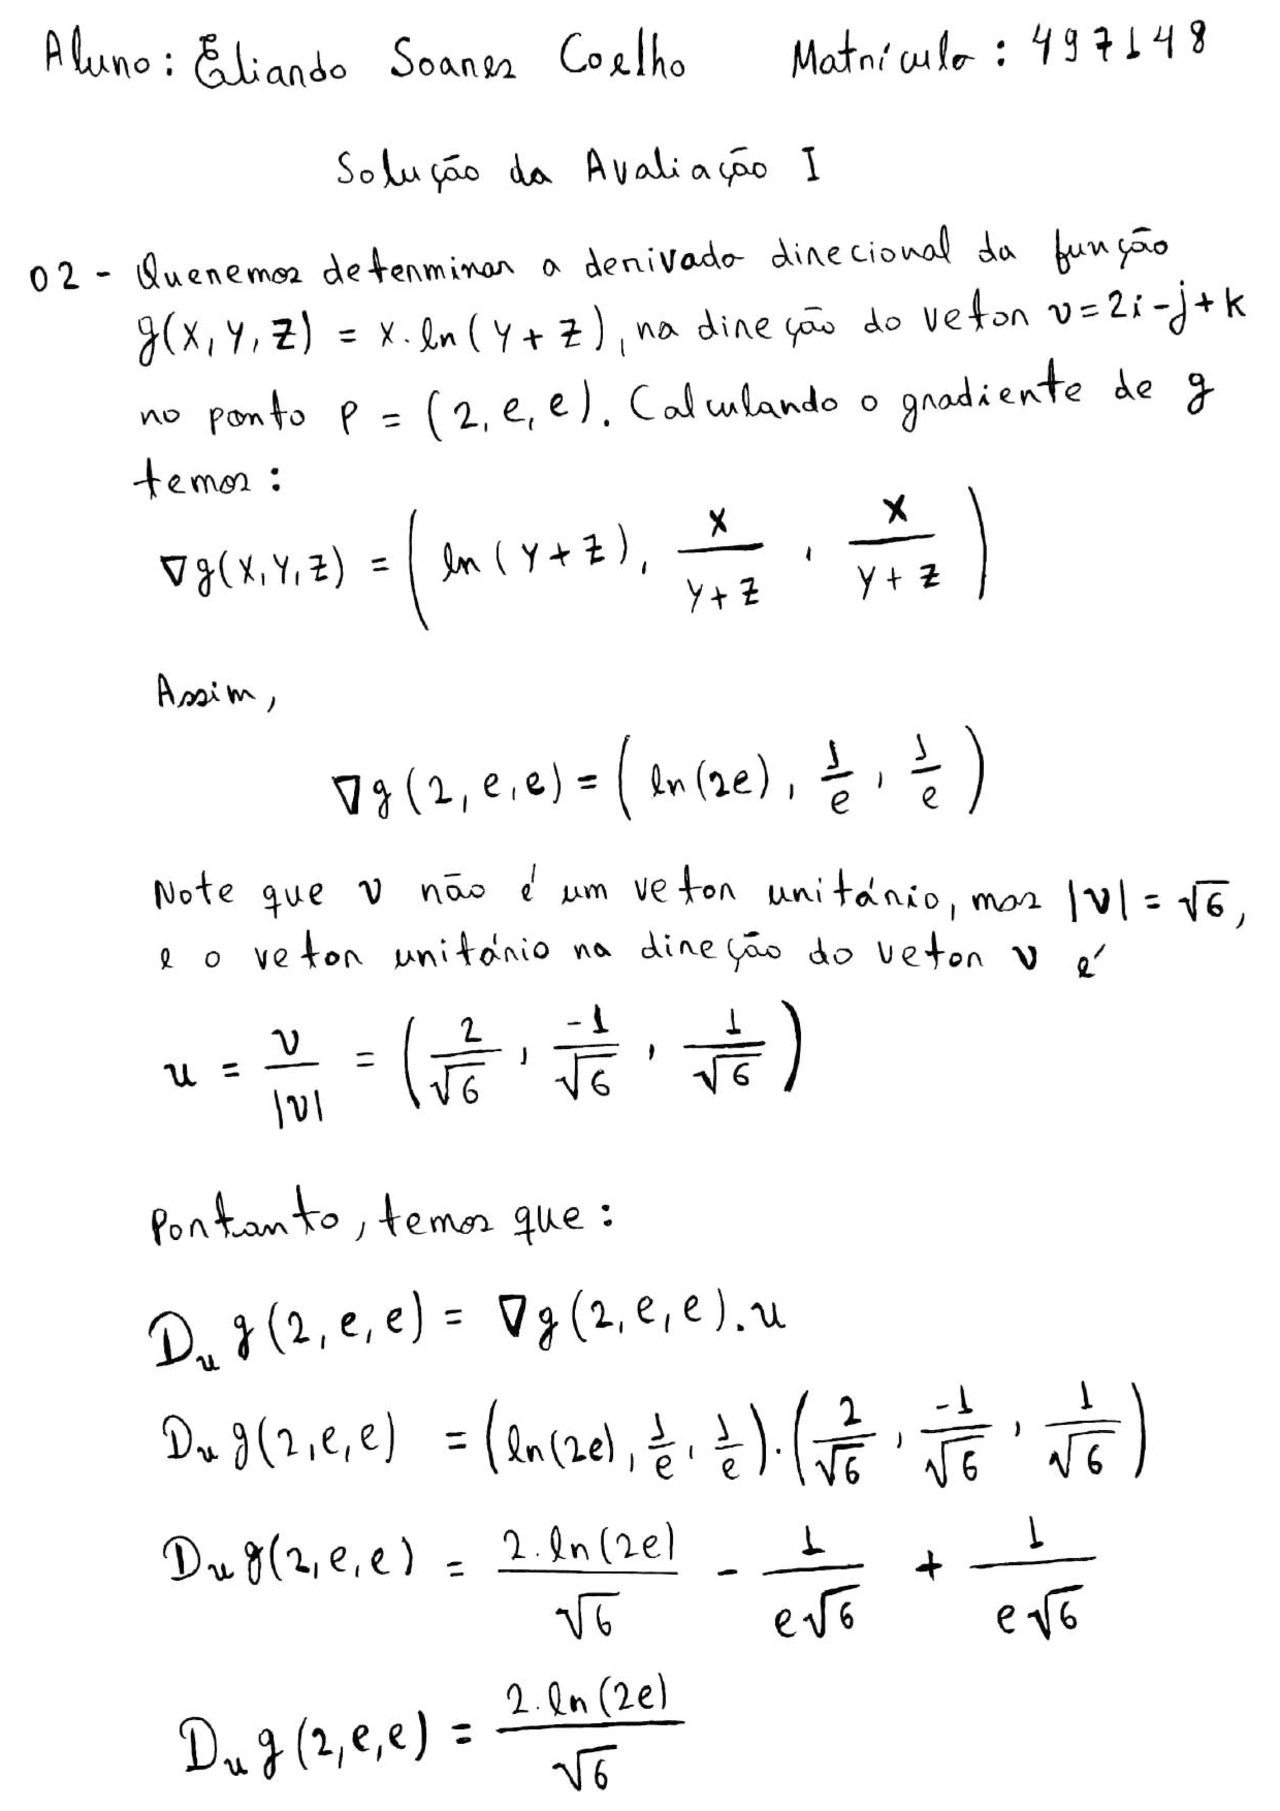 Aluno: Eliando Soares Coelho Matrícula: 497148
Solução da Avaliação I
02 - Queremos determinar a derivada direcional da função
g(x, y, z) = x. ln(y + z), na direção do vetor v = 2i - j + k
no ponto P = (2, e, e). Calculando o gradiente de g
temos:
∇g(x, y, z) = ( ln(y + z), x/(y + z), x/(y + z) )
Assim,
∇g(2, e, e) = ( ln(2e), 1/e, 1/e )
Note que v não é um vetor unitário, mas |v| = √6,
e o vetor unitário na direção do vetor v é
u = v/|v| = ( 2/√6, -1/√6, 1/√6 )
Portanto, temos que:
D_u g(2, e, e) = ∇g(2, e, e).u
D_u g(2, e, e) = ( ln(2e), 1/e, 1/e ).( 2/√6, -1/√6, 1/√6 )
D_u g(2, e, e) = 2.ln(2e)/√6 - 1/(e√6) + 1/(e√6)
D_u g(2, e, e) = 2.ln(2e)/√6